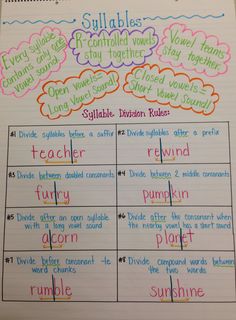 Syllables
Every syllable
contains only one
vowel sound!
R-controlled vowels
stay together
Vowel teams
stay together
Open vowels=
Long Vowel Sound!
Closed vowels=
Short Vowel Sound!
Syllable Division Rules:
#1 Divide syllables before a suffix
teacher
#2 Divide syllables after a prefix
rewind
#3 Divide between doubled consonants
furry
#4 Divide between 2 middle consonants
pumpkin
#5 Divide after an open syllable
with a long vowel sound
acorn
#6 Divide after the consonant when
the nearby vowel has a short sound
planet
#7 Divide before consonant -le
word chunks
rumble
#8 Divide compound words between
the two words
sunshine